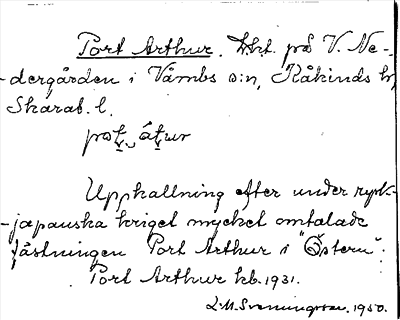 Port Arthur. Lht. på V. Ne-
-dergården i Våmbs s:n, Kåkinds hd,
Skarab. l.
port átur
Uppkallning efter under rysk-
-japanska kriget mycket omtalade
fästningen Port Arthur i "Östern".
Port Arthur kb. 1931.
L.M. Svenungsson. 1950.